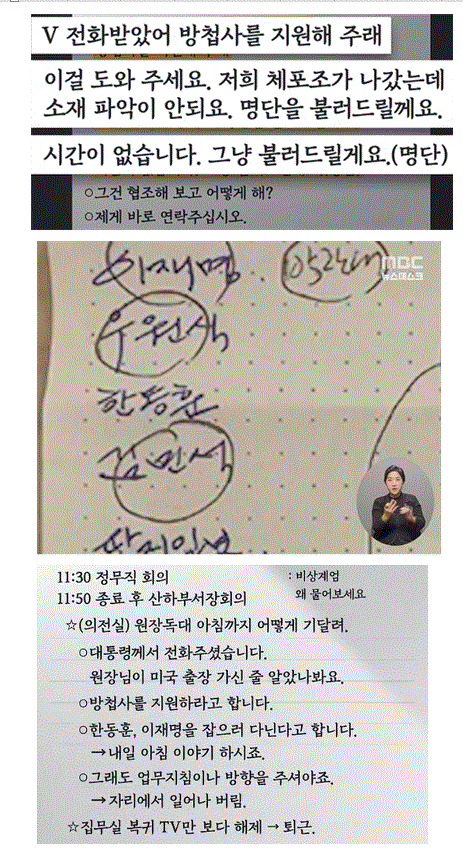 V 전화받았어 방첩사를 지원해 주래
이걸 도와 주세요. 저희 체포조가 나갔는데
소재 파악이 안되요. 명단을 불러드릴께요.
시간이 없습니다. 그냥 불러드릴게요.(명단)
○그건 협조해 보고 어떻게 해?
○제게 바로 연락주십시오.
이재명. 박찬대
MBC
뉴스데스크
우원식
한동훈
김민석
11:30 정무직 회의 : 비상계엄
11:50 종료 후 산하부서장회의 왜 물어보세요
☆(의전실) 원장독대 아침까지 어떻게 기달려.
○대통령께서 전화주셨습니다.
원장님이 미국 출장 가신 줄 알았나봐요.
○방첩사를 지원하라고 합니다.
○한동훈, 이재명을 잡으러 다닌다고 합니다.
→내일 아침 이야기 하시죠.
○그래도 업무지침이나 방향을 주셔야죠.
→자리에서 일어나 버림.
☆집무실 복귀 TV만 보다 해제 → 퇴근.